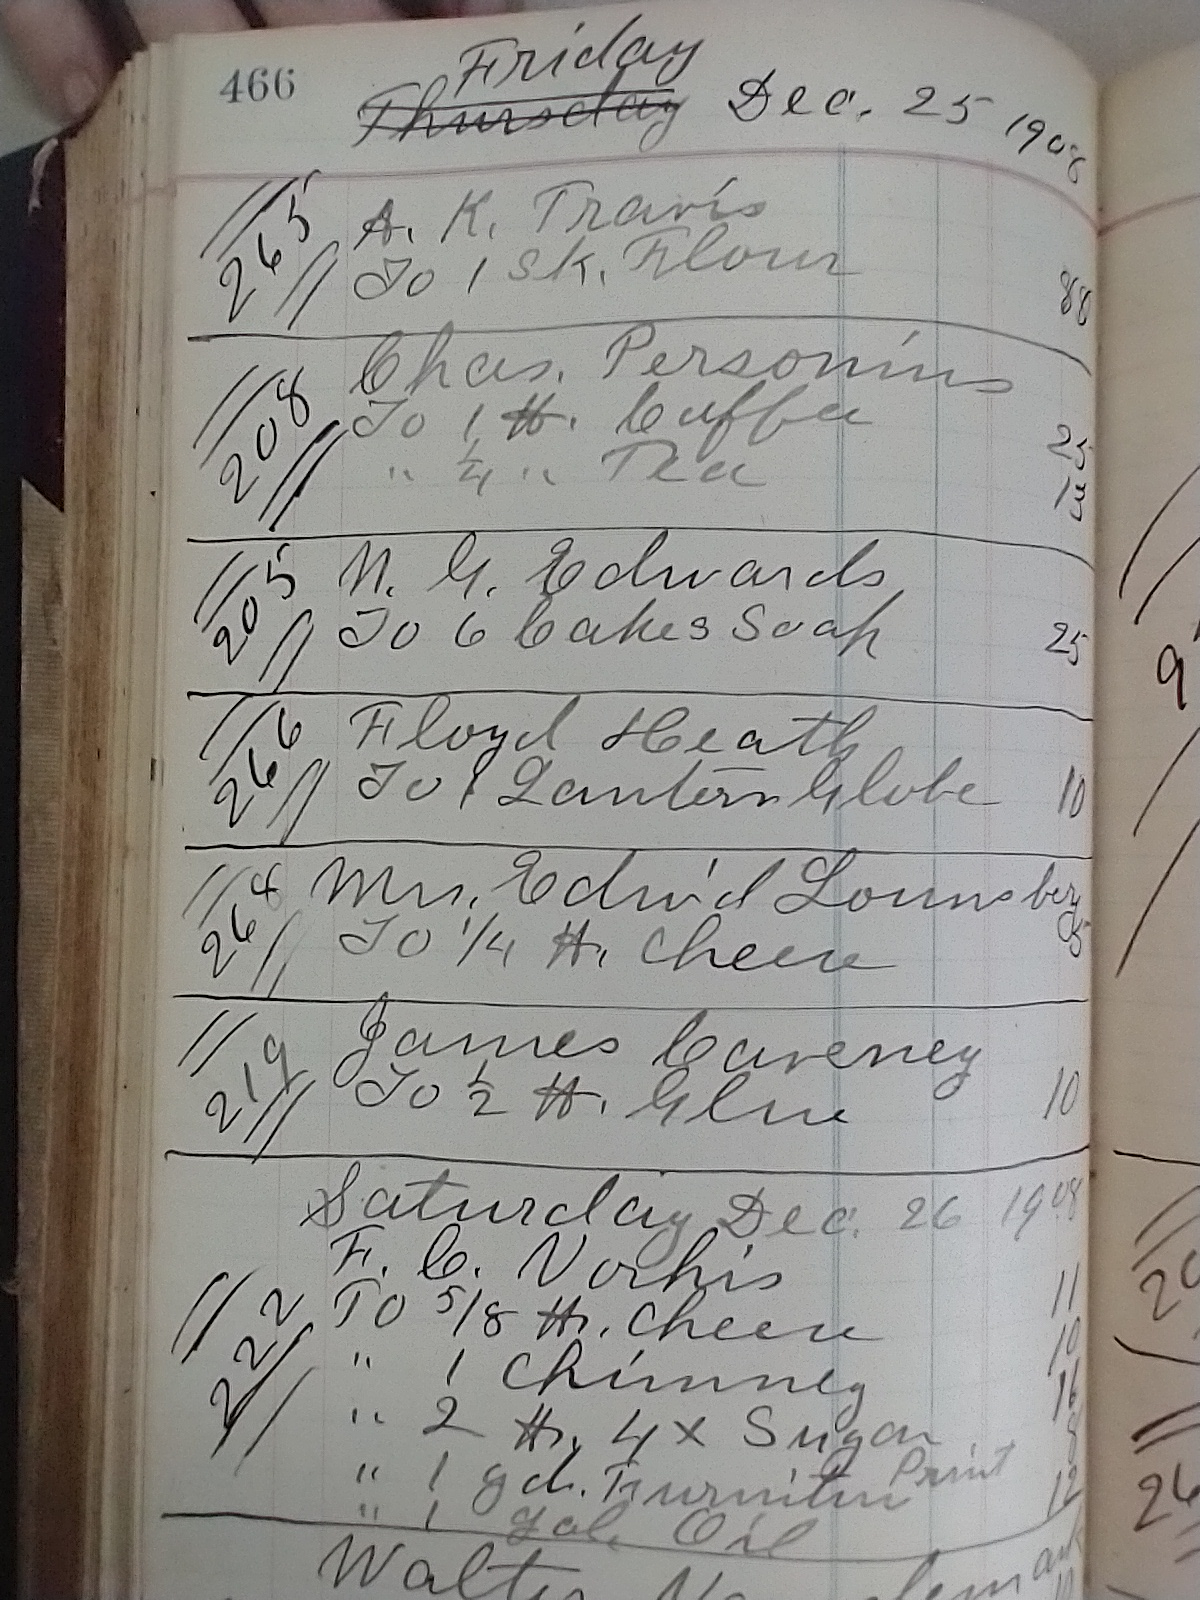 466
Friday
Thursday Dec. 25 1908
265 A. K. Travis
To 1 sk. Flour 88
208 Chas. Personius
To 1 #. Coffee 25
" 1/4 " Tea
205 N. G. Edwards
To 6 Cakes Soap 25
266 Floyd Heath
To 1 Lantern Globe 10
264 Mrs. Edw'd Lounsbery
To 1/4 #. Cheese 5
219 James Caveney
To 1/2 #. Glue 10
Saturday Dec. 26 1908
F. C. Vorhis
222 To 5/8 #. Cheese 11
" 1 Chimney 10
" 2 #. 4x Sugar 16
" 1 yd. Furniture Print 8
" 1 gal. Oil 12
Walter